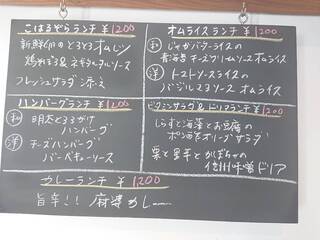 こはるぞらランチ ¥1200
新鮮卵のとろとろオムレツ
鶏そぼろ& ソース
フレッシュサラダ 添え
オムライスランチ ¥1200
和 じゃがバターライスの
青海苔チーズクリームソースオムライス
洋 トマトソースライスの
バジルマヨソース オムライス
ハンバーグランチ ¥1200
和 明太とろろがけ
ハンバーグ
洋 チーズハンバーグ
バーベキューソース
ビタミンサラダ&ドリアランチ ¥1200
しらすと海藻とお豆腐の
ポン酢オリーブサラダ
栗と里芋とかぼちゃの
信州味噌ドリア
カレーランチ ¥1200
旨辛!! 麻婆カレー